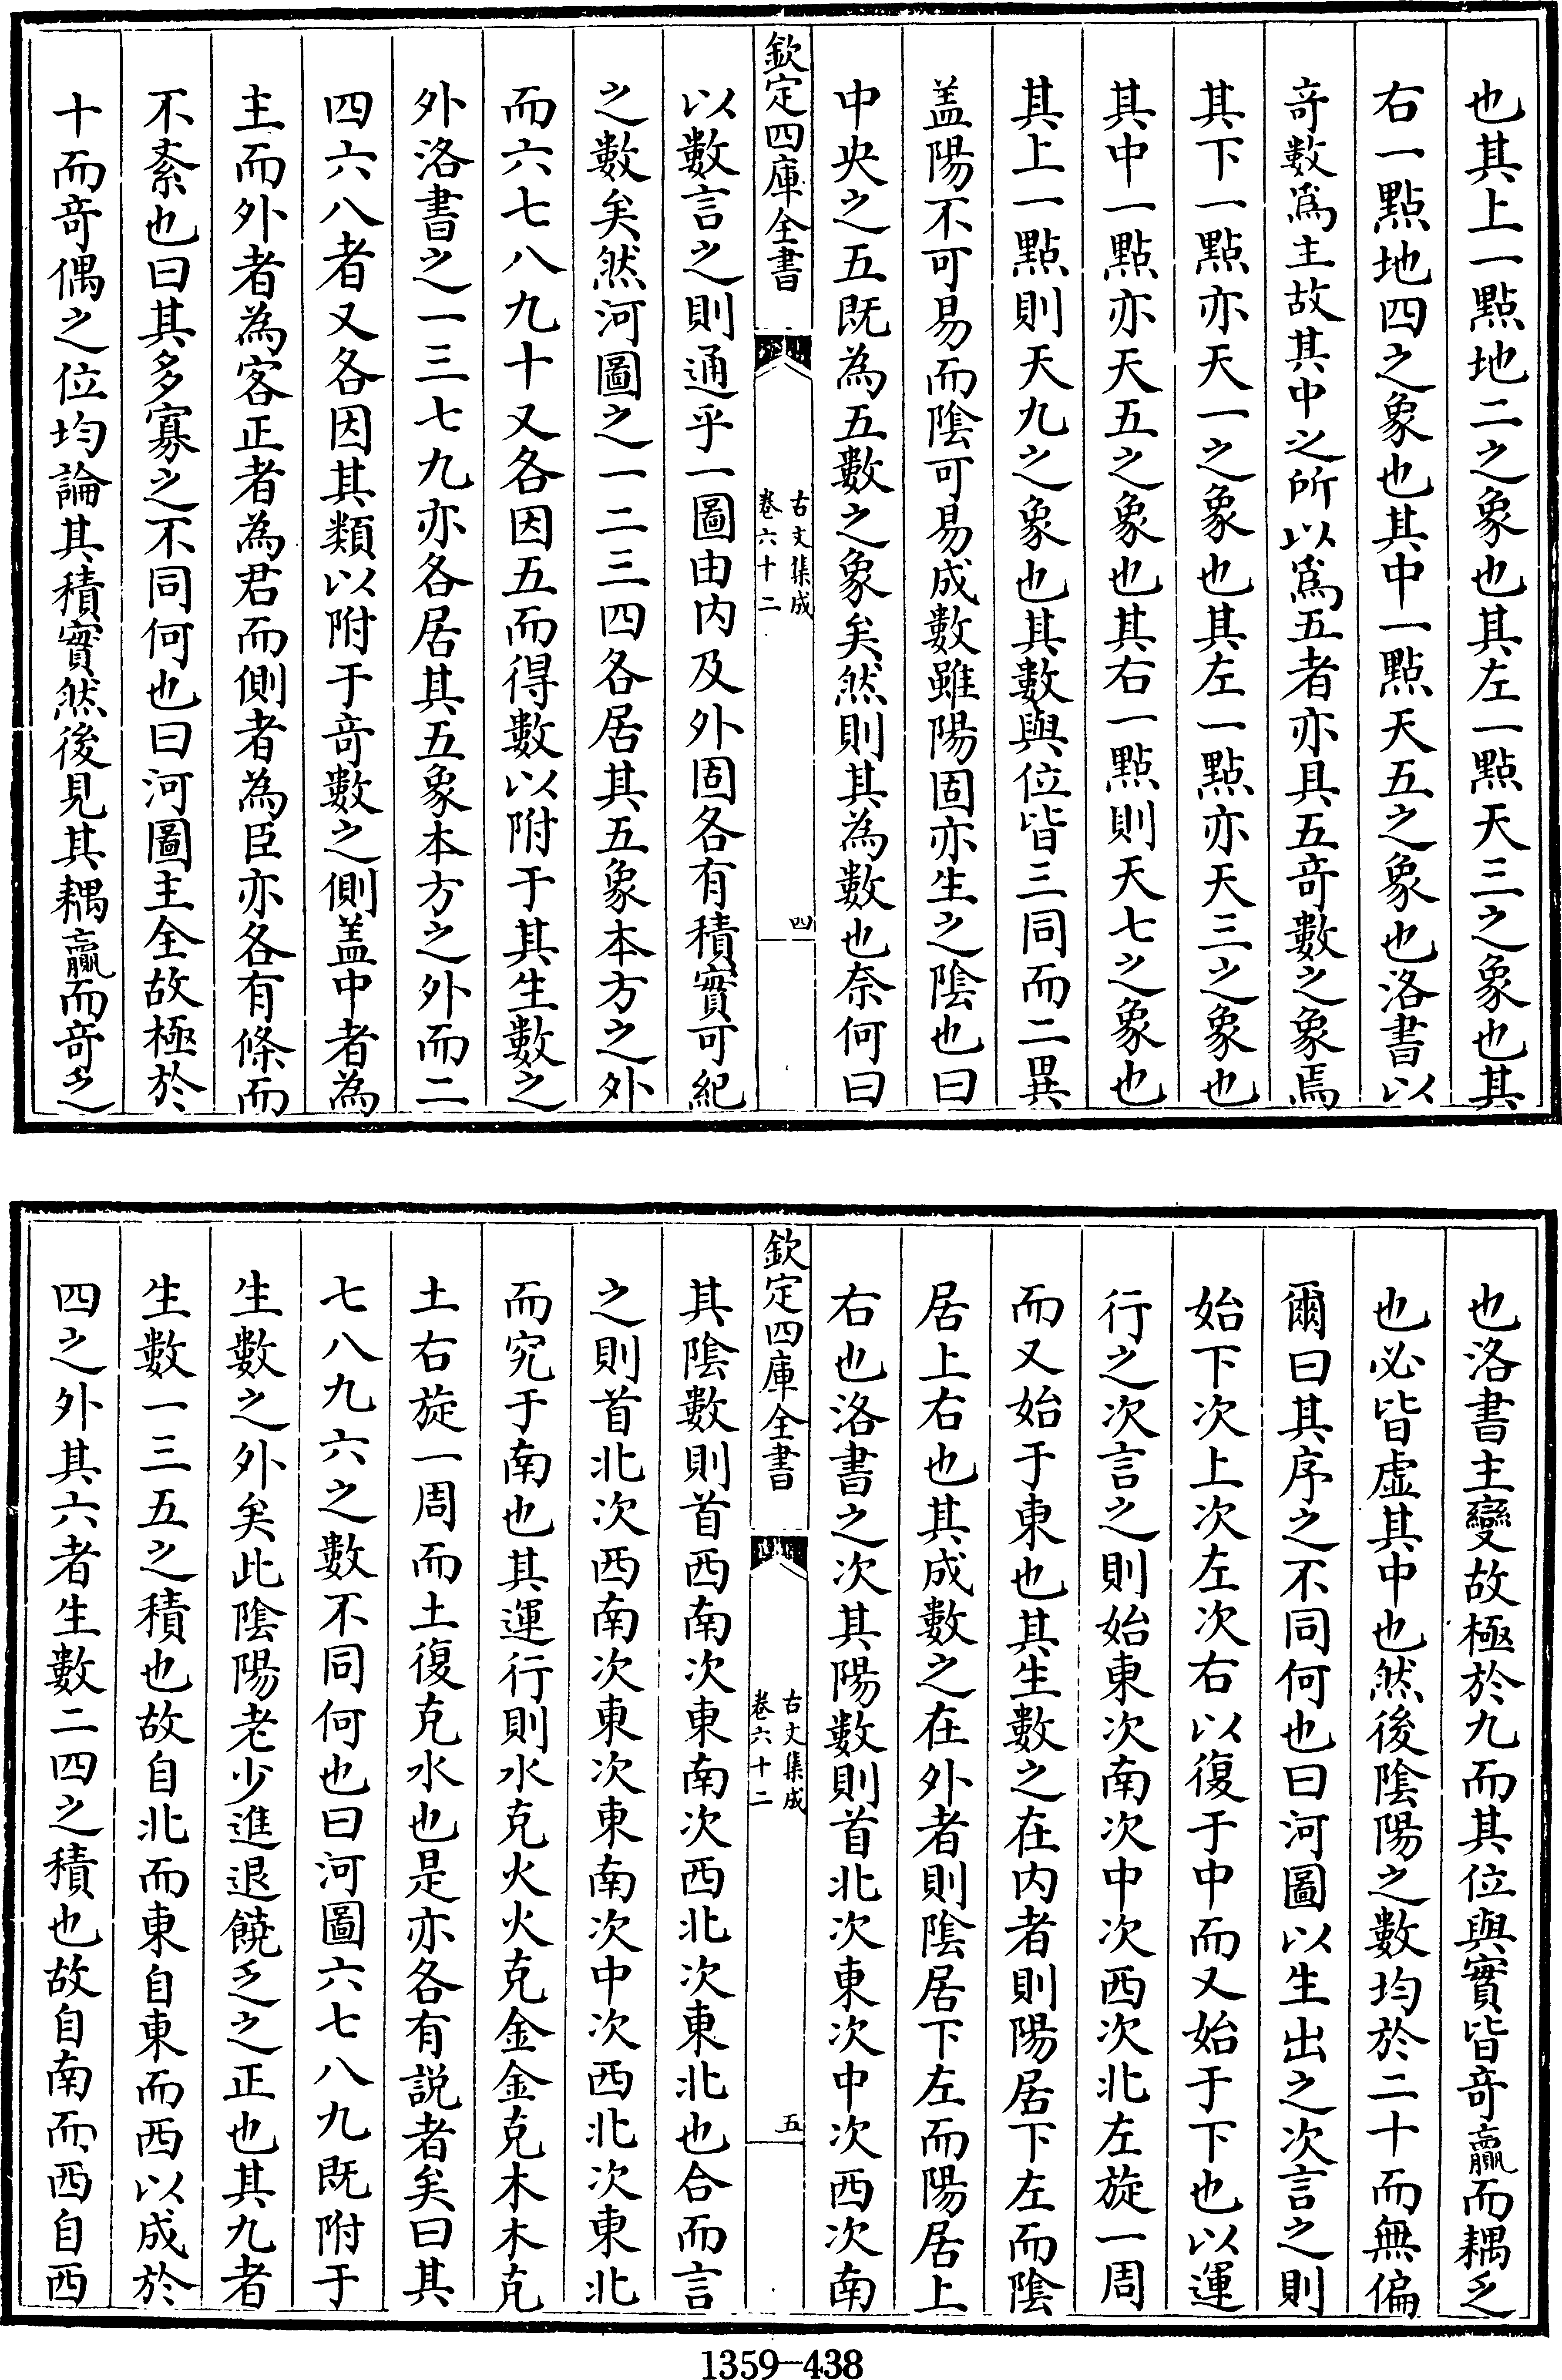 也其上一點地二之象也其左一點天三之象也其
右一點地四之象也其中一點天五之象也洛書以
竒數爲主故其中之所以爲五者亦具五竒數之象焉
其下一點亦天一之象也其左一點亦天三之象也
其中一點亦天五之象也其右一點則天七之象也
其上一點則天九之象也其數與位皆三同而二異
盖陽不可易而隂可易成數雖陽固亦生之隂也曰
中央之五既為五數之象矣然則其為數也奈何曰
欽定四庫全書
古文集成
卷六十二
四
以數言之則通乎一圖由内及外固各有積實可紀
之數矣然河圖之一二三四各居其五象本方之外
而六七八九十又各因五而得數以附于其生數之
外洛書之一三七九亦各居其五象本方之外而二
四六八者又各因其類以附于竒數之側盖中者為
主而外者為客正者為君而側者為臣亦各有條而
不紊也曰其多寡之不同何也曰河圖主全故極於
十而竒偶之位均論其積實然後見其耦贏而竒乏
也洛書主變故極於九而其位與實皆竒贏而耦乏
也必皆虚其中也然後隂陽之數均於二十而無偏
爾曰其序之不同何也曰河圖以生出之次言之則
始下次上次左次右以復于中而又始于下也以運
行之次言之則始東次南次中次西次北左旋一周
而又始于東也其生數之在内者則陽居下左而隂
居上右也其成數之在外者則隂居下左而陽居上
右也洛書之次其陽數則首北次東次中次西次南
欽定四庫全書
古文集成
卷六十二
五
其隂數則首西南次東南次西北次東北也合而言
之則首北次西南次東次東南次中次西北次東北
而究于南也其運行則水克火火克金金克木木克
土右旋一周而土復克水也是亦各有説者矣曰其
七八九六之數不同何也曰河圖六七八九既附于
生數之外矣此隂陽老少進退饒乏之正也其九者
生數一三五之積也故自北而東自東而西以成於
四之外其六者生數二四之積也故自南而西自西
1359—438